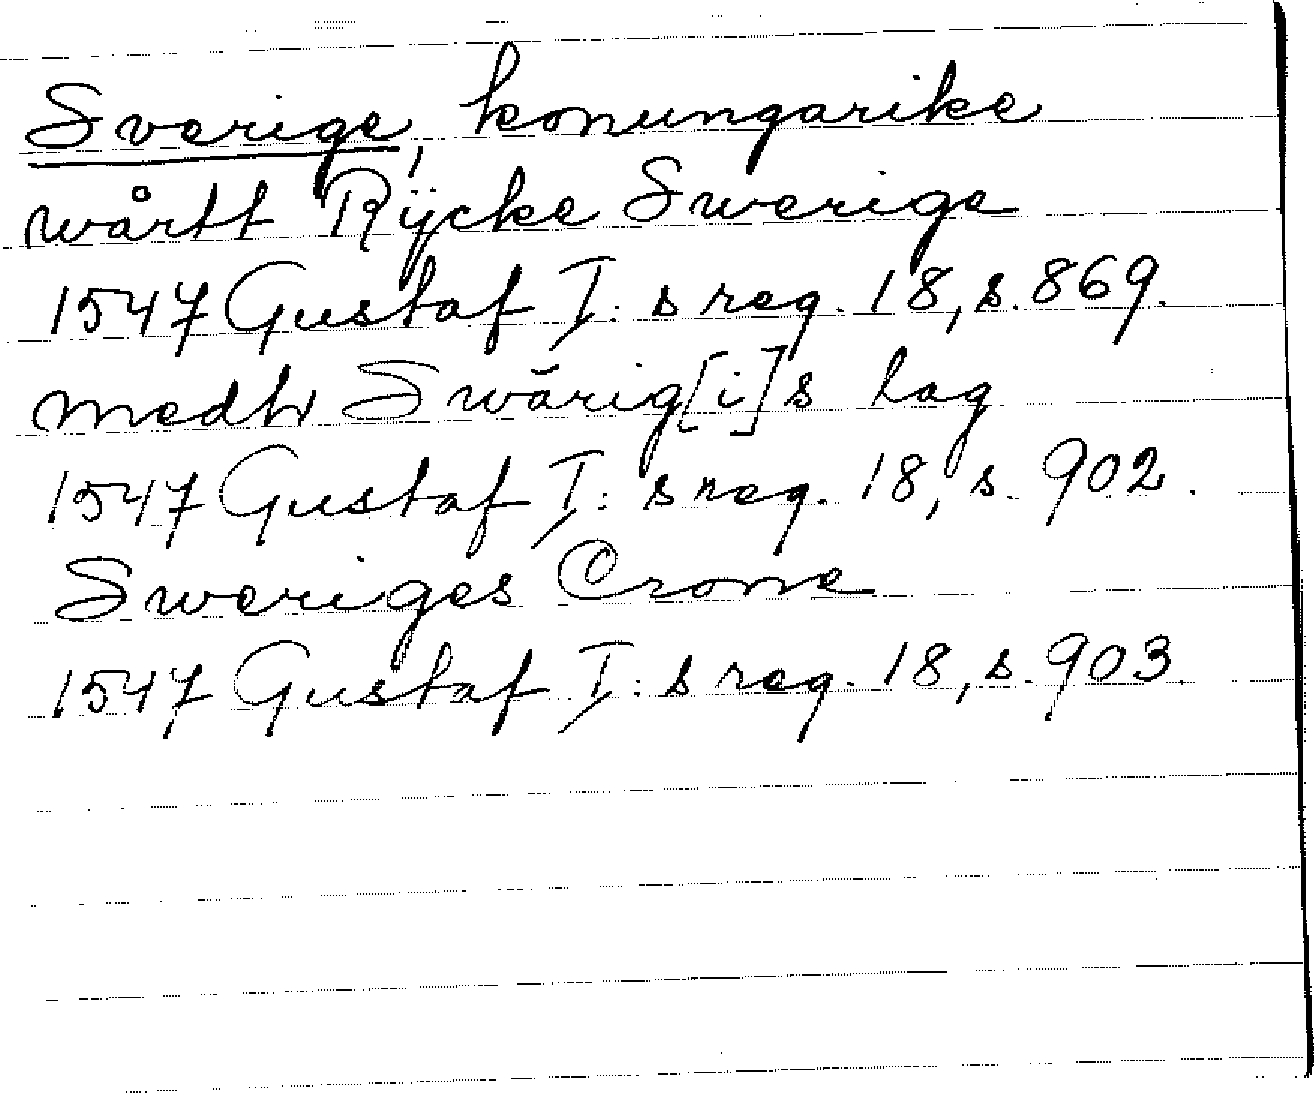 Sverige, konungarike
wårtt Rÿcke Swerige
1547 Gustaf I:s reg. 18, s. 869.
medh Swärig[i]s lag
1547 Gustaf I:s reg. 18, s. 902.
Sweriges Crone
1547 Gustaf I:s reg. 18, s. 903.